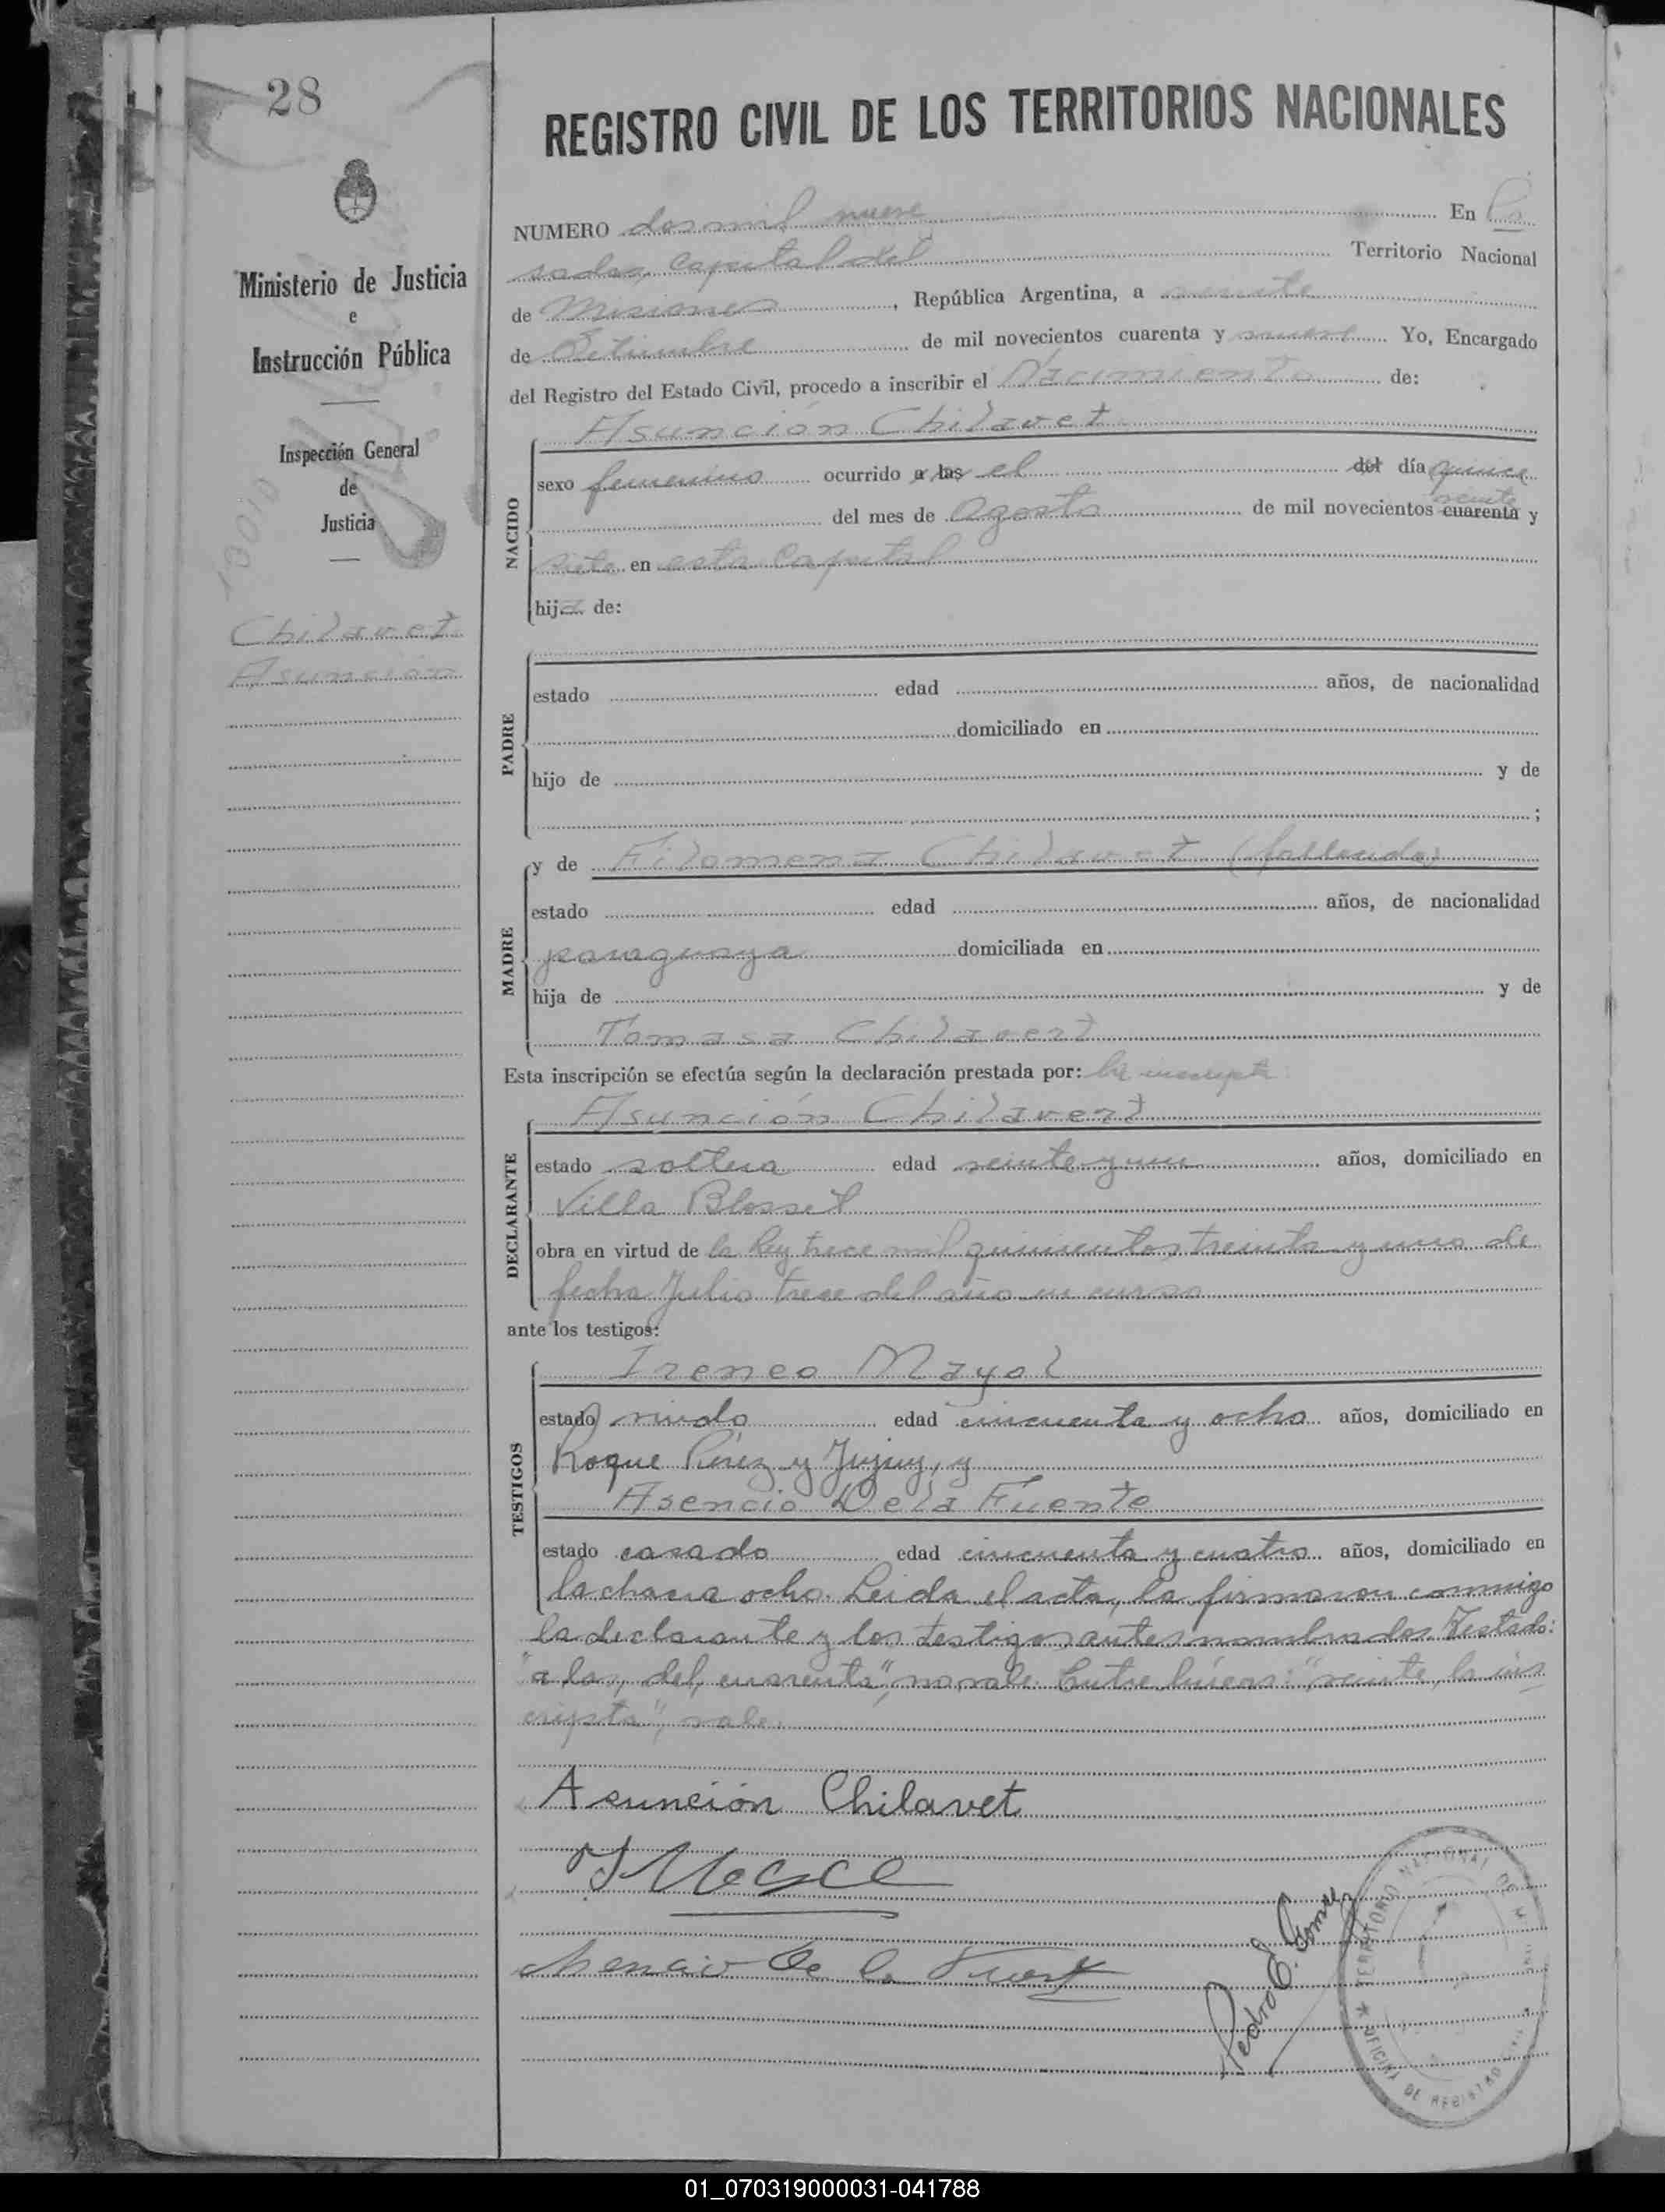 28
REGISTRO CIVIL DE LOS TERRITORIOS NACIONALES
Ministerio de Justicia
e
Instrucción Pública
Inspección General
de
Justicia
Chilavet
Asunción
NUMERO dos mil nueve En Po
sadas, Capital del Territorio Nacional
de Misiones, República Argentina, a veinte
de Setiembre de mil novecientos cuarenta y nueve Yo, Encargado
del Registro del Estado Civil, procedo a inscribir el Nacimiento de:
Asunción Chilavet
NACIDO
sexo femenino ocurrido a las el del día quince
veinte
del mes de Agosto de mil novecientos cuarenta y
siete en esta Capital
hija de:
PADRE
estado edad años, de nacionalidad
domiciliado en
hijo de y de
;
MADRE
y de Filomena Chilavet (fallecida)
estado edad años, de nacionalidad
paraguaya domiciliada en
hija de y de
Tomasa Chilavert
Esta inscripción se efectúa según la declaración prestada por: la inscripta
DECLARANTE
Asunción Chilavert
estado soltera edad veinte y un años, domiciliado en
Villa Blosset
obra en virtud de la ley trece mil quinientos treinta y uno de
fecha Julio trece del año en curso
ante los testigos:
TESTIGOS
Ireneo Mayol
estado viudo edad cincuenta y ocho años, domiciliado en
Roque Pérez y Jujuy, y
Asencio De la Fuente
estado casado edad cincuenta y cuatro años, domiciliado en
la chacra ocho. Leida el acta, la firmaron conmigo
la declarante y los testigos antes nombrados. Testado:
"a las, del, cuarenta", no vale. Entre líneas: "veinte, la ins
cripta", vale.
Asunción Chilavet
Asencio de la Fuente
Pedro E. Gomez
TERRITORIO NACIONAL DE
OFICINA DE REGISTRO CIVIL
01_070319000031-041788